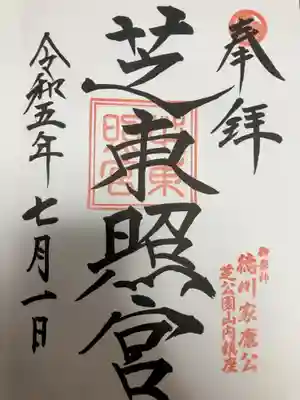 奉拝
御祭神
徳川家康公
芝公園山内鎮座
芝東照宮
令和五年七月一日